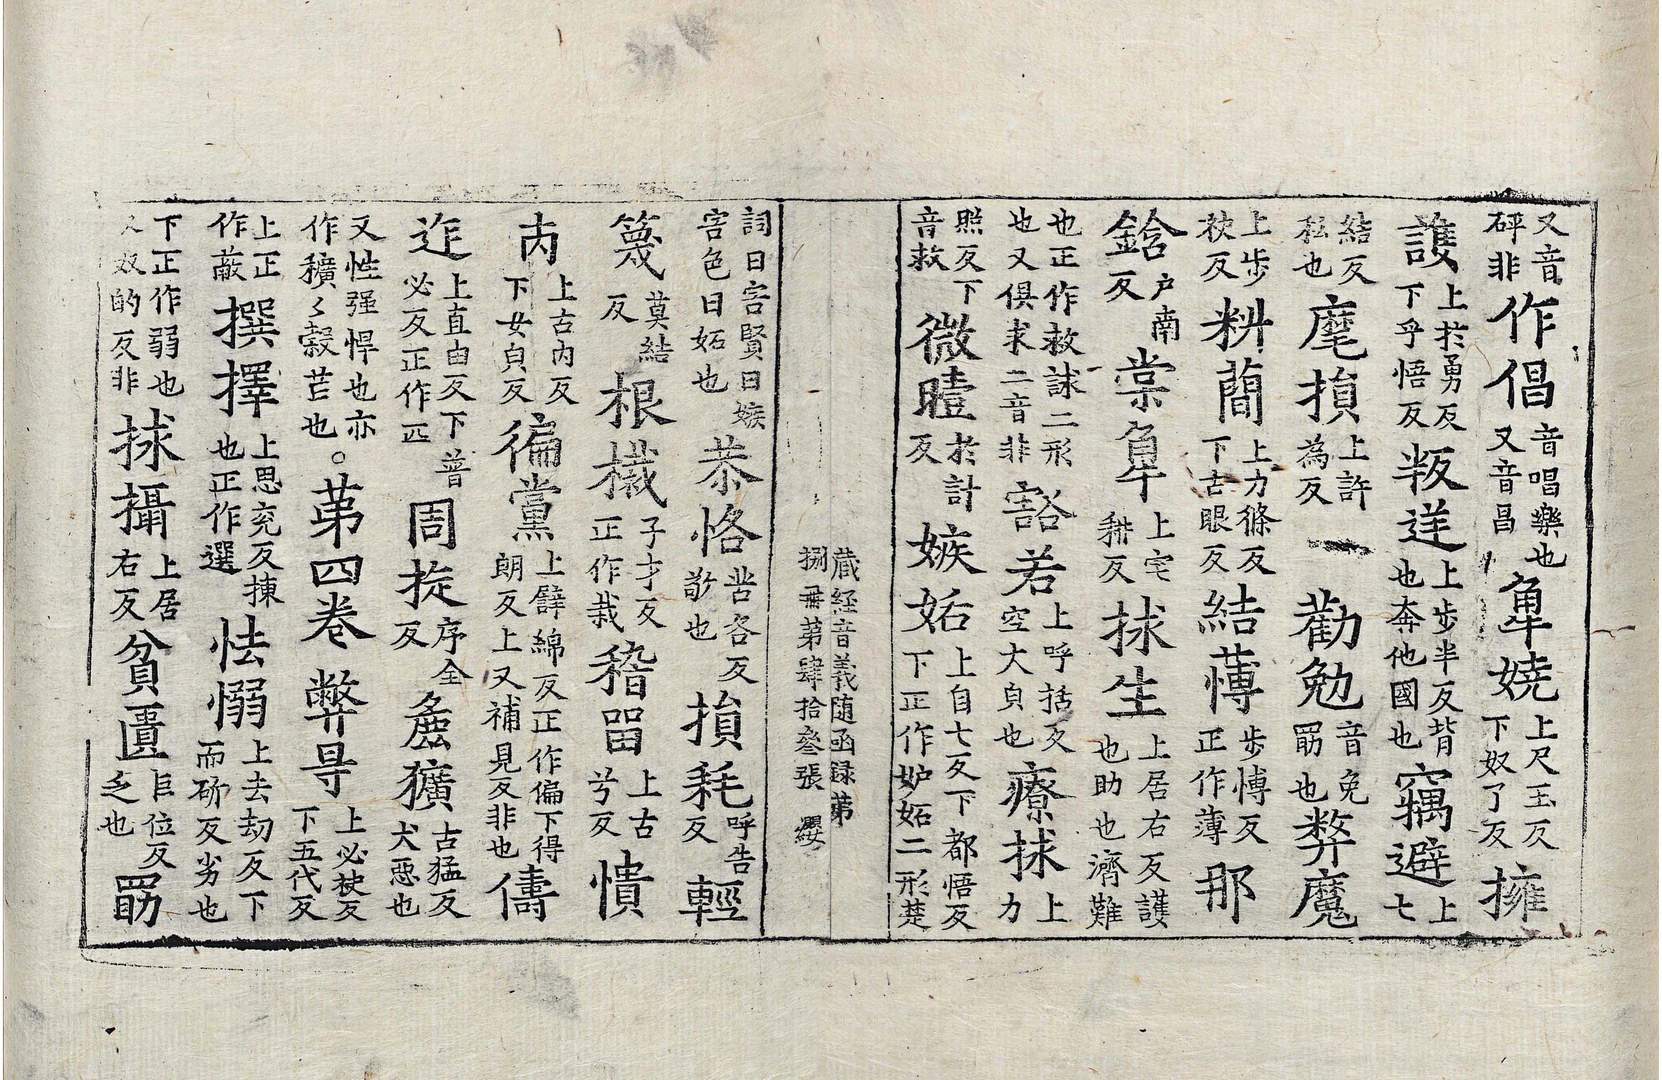 又音砰非作倡音唱樂也又音昌𢍆嬈上尺玉反下奴了反擁
護上扵勇反下乎悟反叛迋上步半反背也奔他國也竊避上七
結反私也麾損上許為反勸勉音免勗也弊魔
上步袂反料蕳上力條反下古眼反結薄步愽反正作薄那
鋡户南反棠𢍆上宅耕反捄生上居右反護也助也濟難
也正作救試二形也又俱求二音非豁若上呼括反空大皃也療捄上力
照反下音救微曀扵計反嫉妬上自七反下都悟反下正作妒妬二形楚
藏経音義随函録第捌冊第肆拾叄張 纓
詞曰害賢曰嫉害色曰妬也恭恪苦各反敬也損耗呼告反輕
篾莫結反根栽子才反正作栽稽留上古兮反憒
内上古内反下女皃反徧黨上𨐨綿反正作偏下得朗反上又補見反非也儔
迮上直由反下普必反正作匹周旋序全反麁獷古猛反犬惡也
又性强悍也亦作穬穬糓芒也。苐四卷弊㝵上必袂反下五代反
上正作蔽撰擇上思兖反揀也正作選怯愵上去刼反下而斫反劣也
下正作弱也又奴的反非捄攝上居右反貧匱巨位反乏也勗